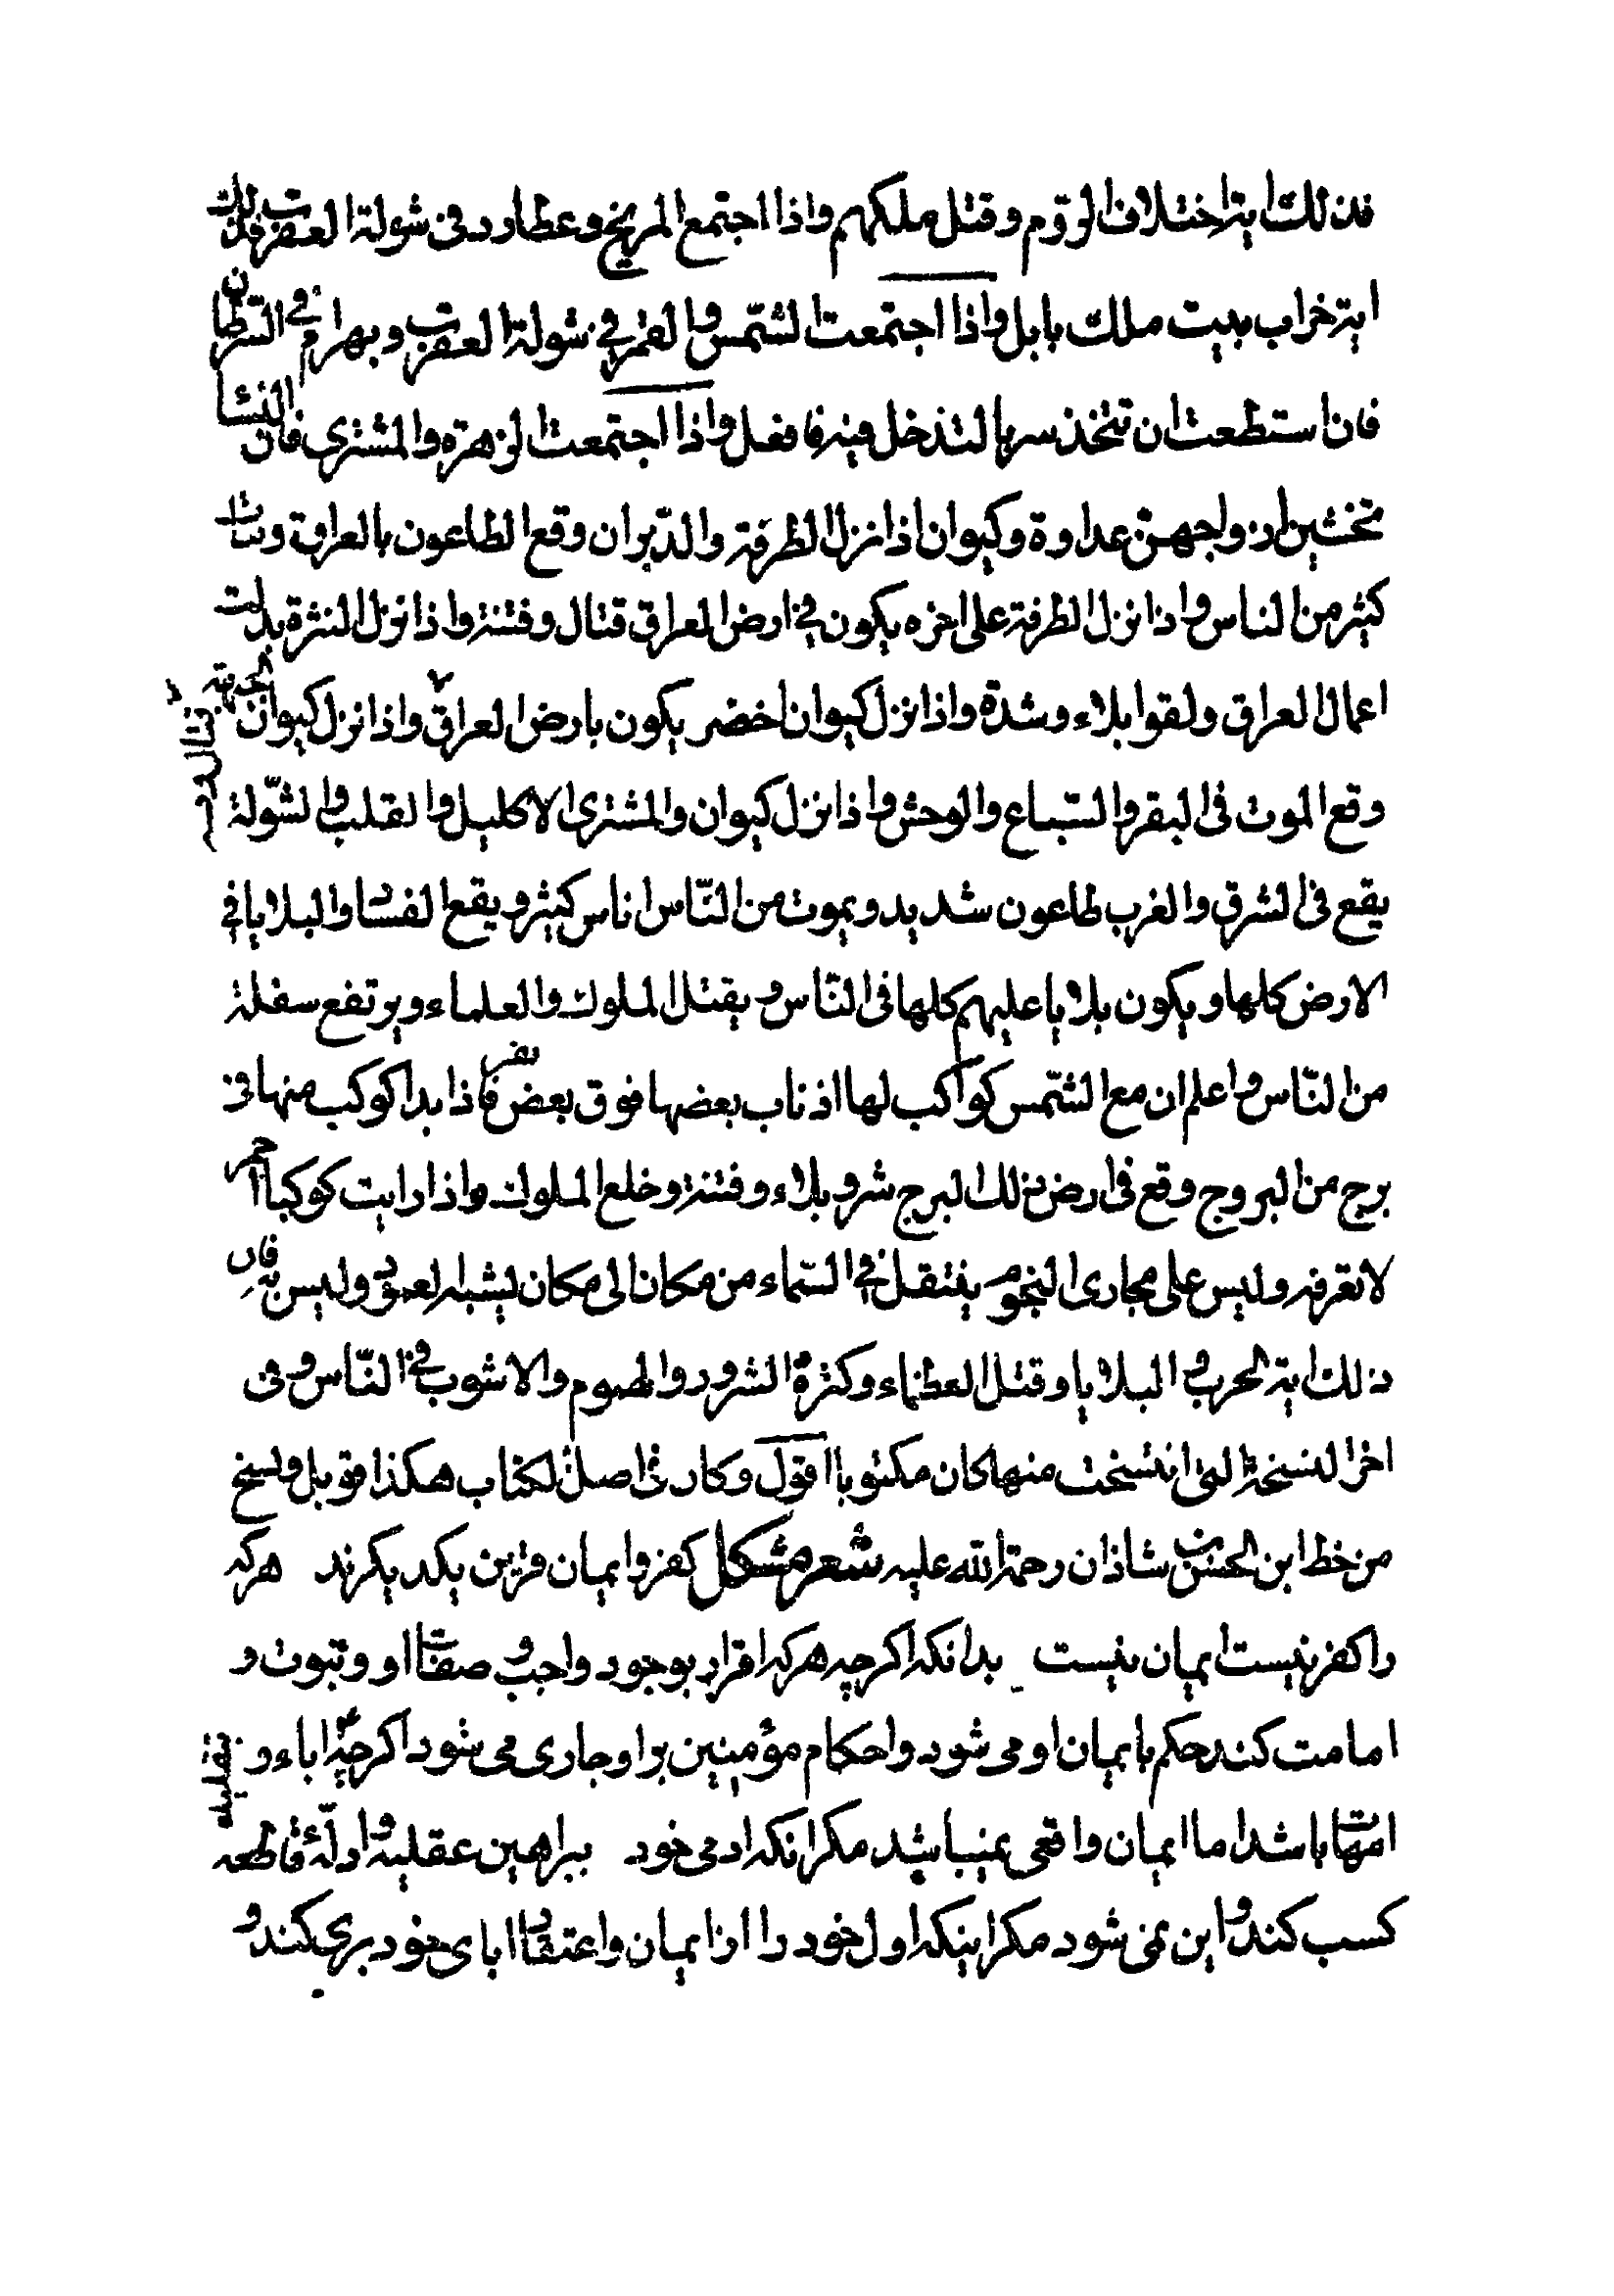 فذلك اية اختلاف الروم وقتل ملكهم واذا اجتمع المريخ وعطارد فى شولة العقرب فذلك
اية خراب بيت ملك بابل واذا اجتمعت الشّمس والقمر في شولة العقرب وبهرام في السّرطان
فان استطعت ان تتخذ سربا لتدخل فيه فافعل واذا اجتمعت الزهرة والمشترى فان النسا
تخشين ازواجهن عداوة وكيوان اذا نزل الطرفة والدّبران وقع الطاعون بالعراق ومات
كثير من الناس واذا نزل الطرفة على اخره يكون في ارض العراق قتال وفتنة واذا نزل النثرة بدلت
اعمال العراق ولقوا بلاء وشدة واذا نزل كيوان اخضر يكون بارض العراق واذا نزل كيوان الجبهة
وقع الموت فى البقر والسّباع والوحش واذا نزل كيوان والمشترى الاكليل والقلب والشّولة
يقع فى الشرق والغرب طاعون شديد ويموت من النّاس اناس كثير ويقع الفساد والبلايا في
الارض كلها ويكون بلايا عليهم كلها فى النّاس ويقتل الملوك والعلماء ويرتفع سفلة
من النّاس واعلم ان مع الشّمس كواكب لها اذناب بعضها فوق بعض فاذا بدا كوكب منها فى
برج من البروج وقع فى ارض ذلك البرج شر وبلاء وفتنة وخلع الملوك واذا رايت كوكبا احمر
لا تعرفه وليس على مجارى النجوم ينتقل في السّماء من مكان الى مكان يشبه العمود وليس به فان
ذلك اية الحرب والبلايا وقتل العظماء وكثرة الشرور والهموم والاشوب في النّاس وفى
اخر النسخة التى انتسخت منها كان مكتوبا اقول وكان فى اصل الكتاب هكذا قوبل ونسخ
من خط ابن الحسن بن شاذان رحمة الله عليه شعر مشكل كفر وايمان قرين يكديكرند هركه
را كفر نيست ايمان نيست بدانكه اكرچه هركه اقرار بوجود واجب و صفات او و نبوت و
امامت كند حكم بايمان او مى شود واحكام مؤمنين براو جارى مى شود اكرچه اباء و
امهات باشد اما ايمان واقعى نميباشد مكر انكه ادمى خود ببراهين عقلية و ادلّهٔ قاطعه
كسب كند و اين نمى شود مكر اينكه اول خود را از ايمان و اعتقاد اباى خود برى كند و